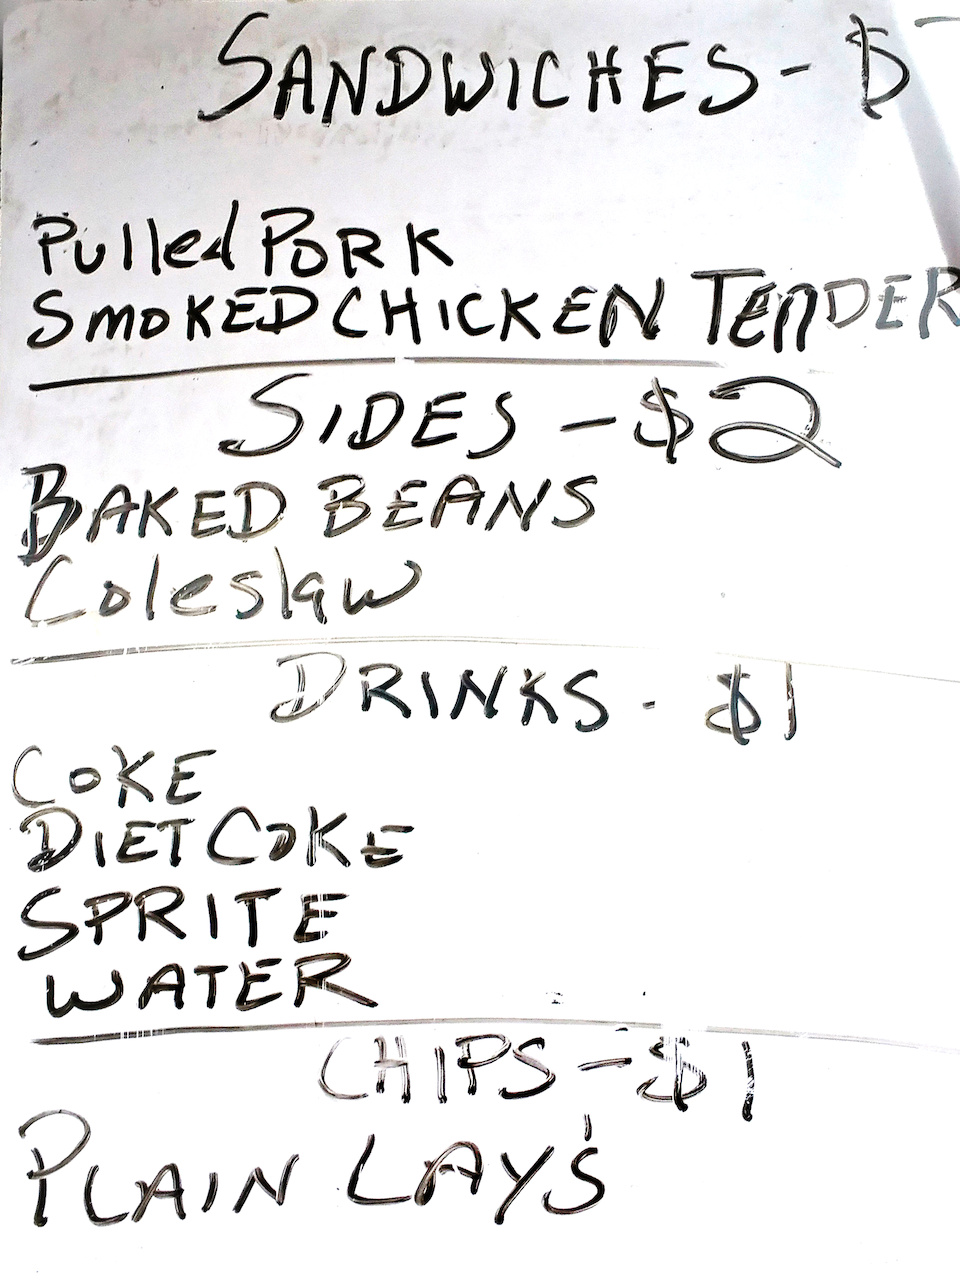 SANDWICHES - $
Pulled PORK
SMOKED CHICKEN TENDER
SIDES - $2
BAKED BEANS
Coleslaw
DRINKS - $1
COKE
DIET COKE
SPRITE
WATER
CHIPS - $1
PLAIN LAY'S